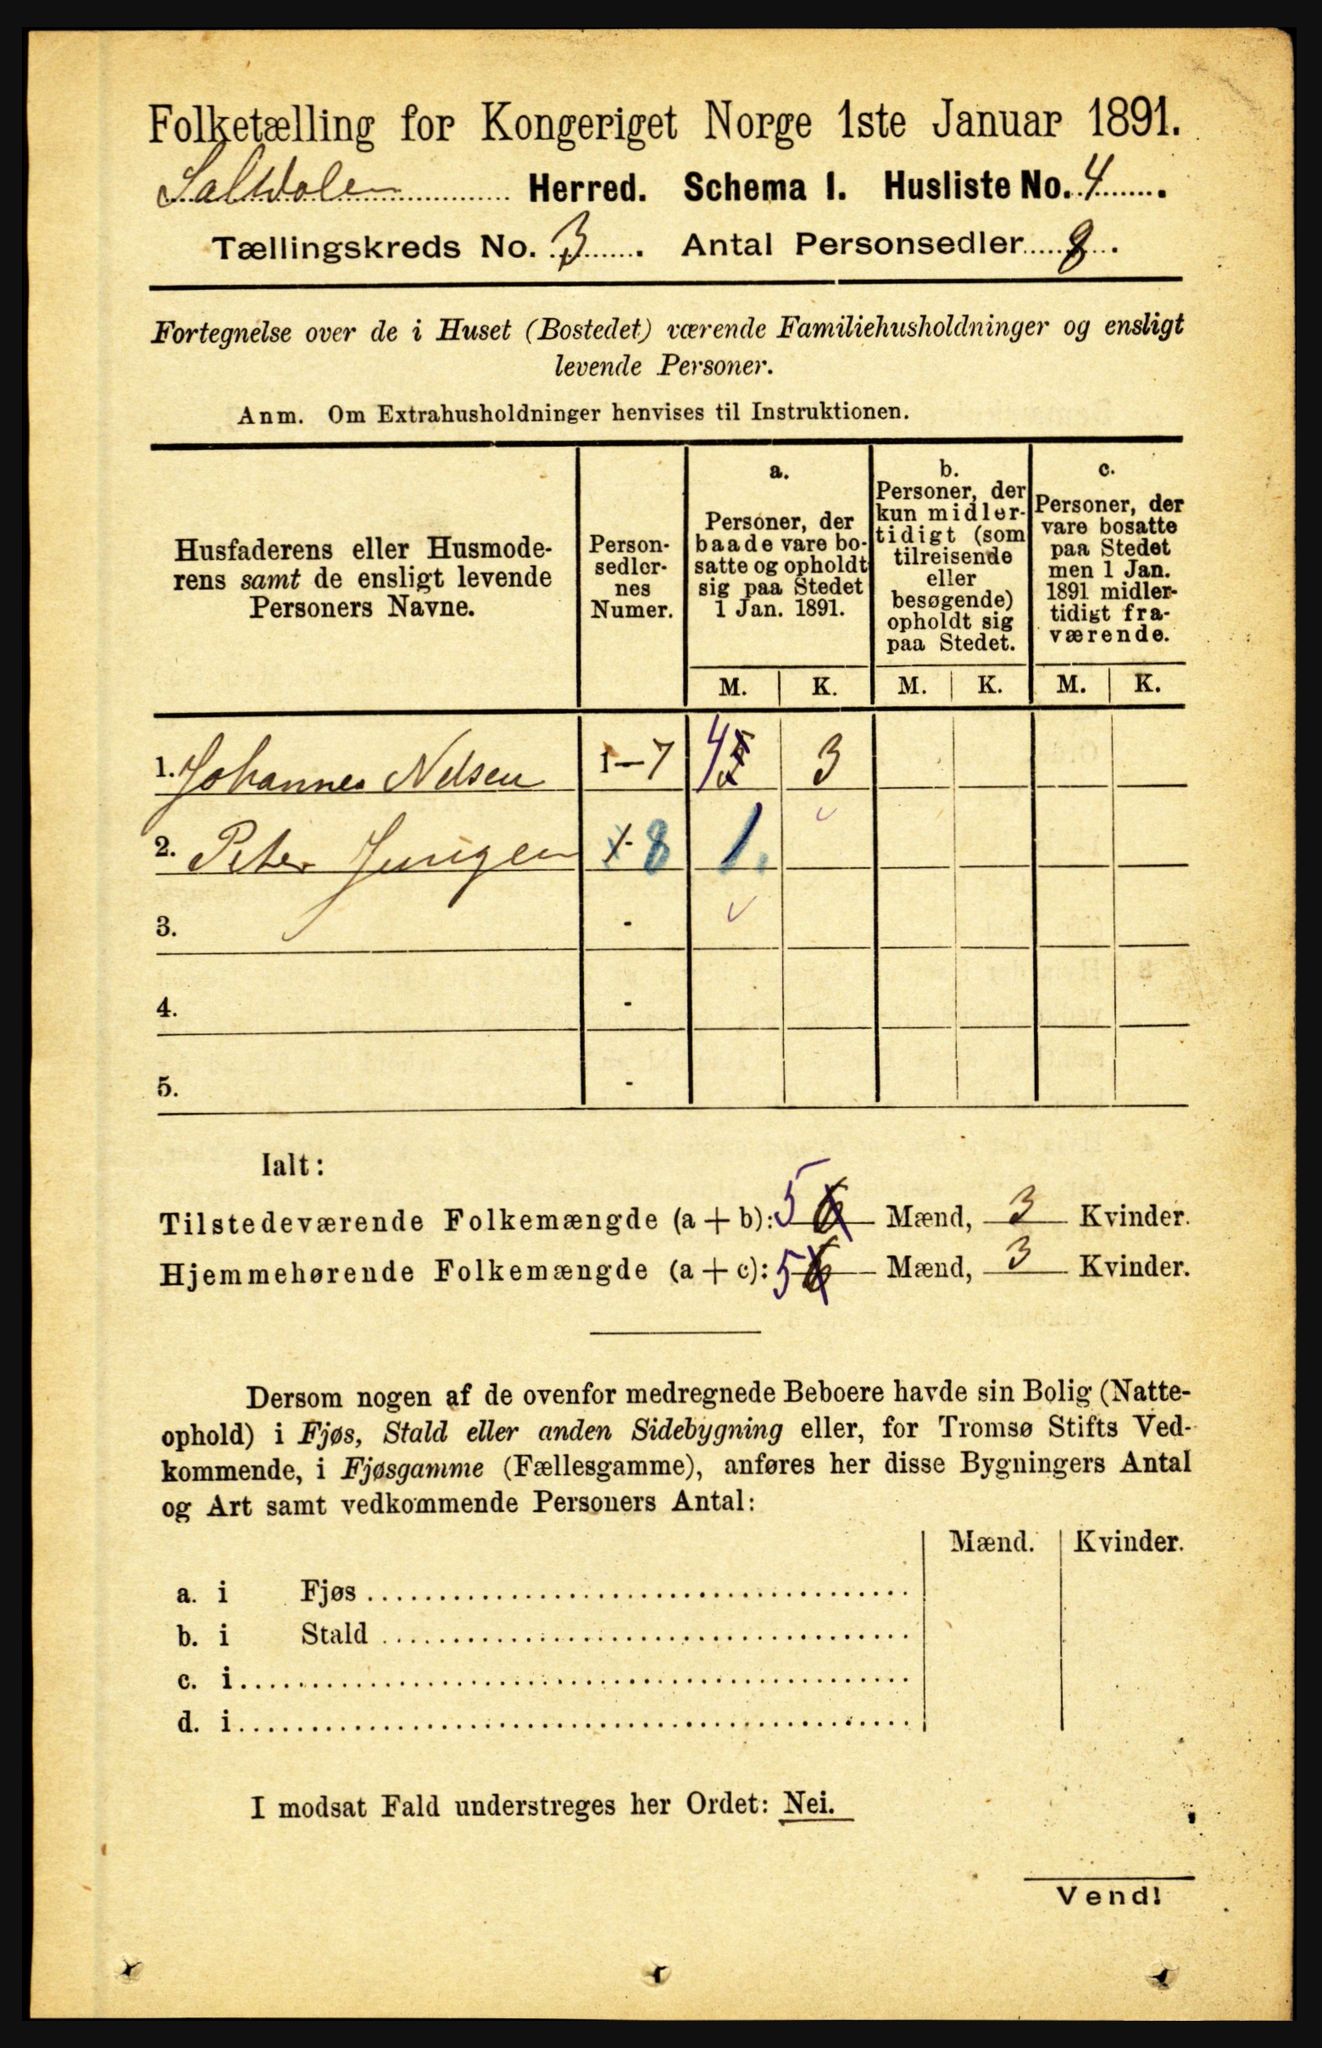 Folketælling for Kongeriget Norge 1ste Januar 1891.
Saltdalen Herred. Schema 1. Husliste No. 4.
Tællingskreds No. 3. Antal Personsedler 8.
Fortegnelse over de i Huset (Bostedet) værende Familiehusholdninger og ensligt
levende Personer.
Anm. Om Extrahusholdninger henvises til Instruktionen.
Husfaderens eller Husmode-
rens samt de ensligt levende
Personers Navne.
Person-
sedler-
nes
Numer.
a.
Personer, der
baade vare bo-
satte og opholdt
sig paa Stedet
1 Jan. 1891.
b.
Personer, der
kun midler-
tidigt (som
tilreisende
eller
besøgende)
opholdt sig
paa Stedet.
c.
Personer, der
vare bosatte
paa Stedet
men 1 Jan.
1891 midler-
tidigt fra-
værende.
M. K. M. K. M. K.
1. Johannes Nilsen 1-7 4 5 3
2. Peter 1- 8 1.
3. -
4. -
5. -
Ialt:
Tilstedeværende Folkemængde (a + b): 5 6 Mænd, 3 Kvinder.
Hjemmehørende Folkemængde (a + c): 5 6 Mænd, 3 Kvinder.
Dersom nogen af de ovenfor medregnede Beboere havde sin Bolig (Natte-
ophold) i Fjøs, Stald eller anden Sidebygning eller, for Tromsø Stifts Ved-
kommende, i Fjøsgamme (Fællesgamme), anføres her disse Bygningers Antal
og Art samt vedkommende Personers Antal:
Mænd. Kvinder.
a. i Fjøs
b. i Stald
c. i
d. i
I modsat Fald understreges her Ordet: Nei.
Vend!